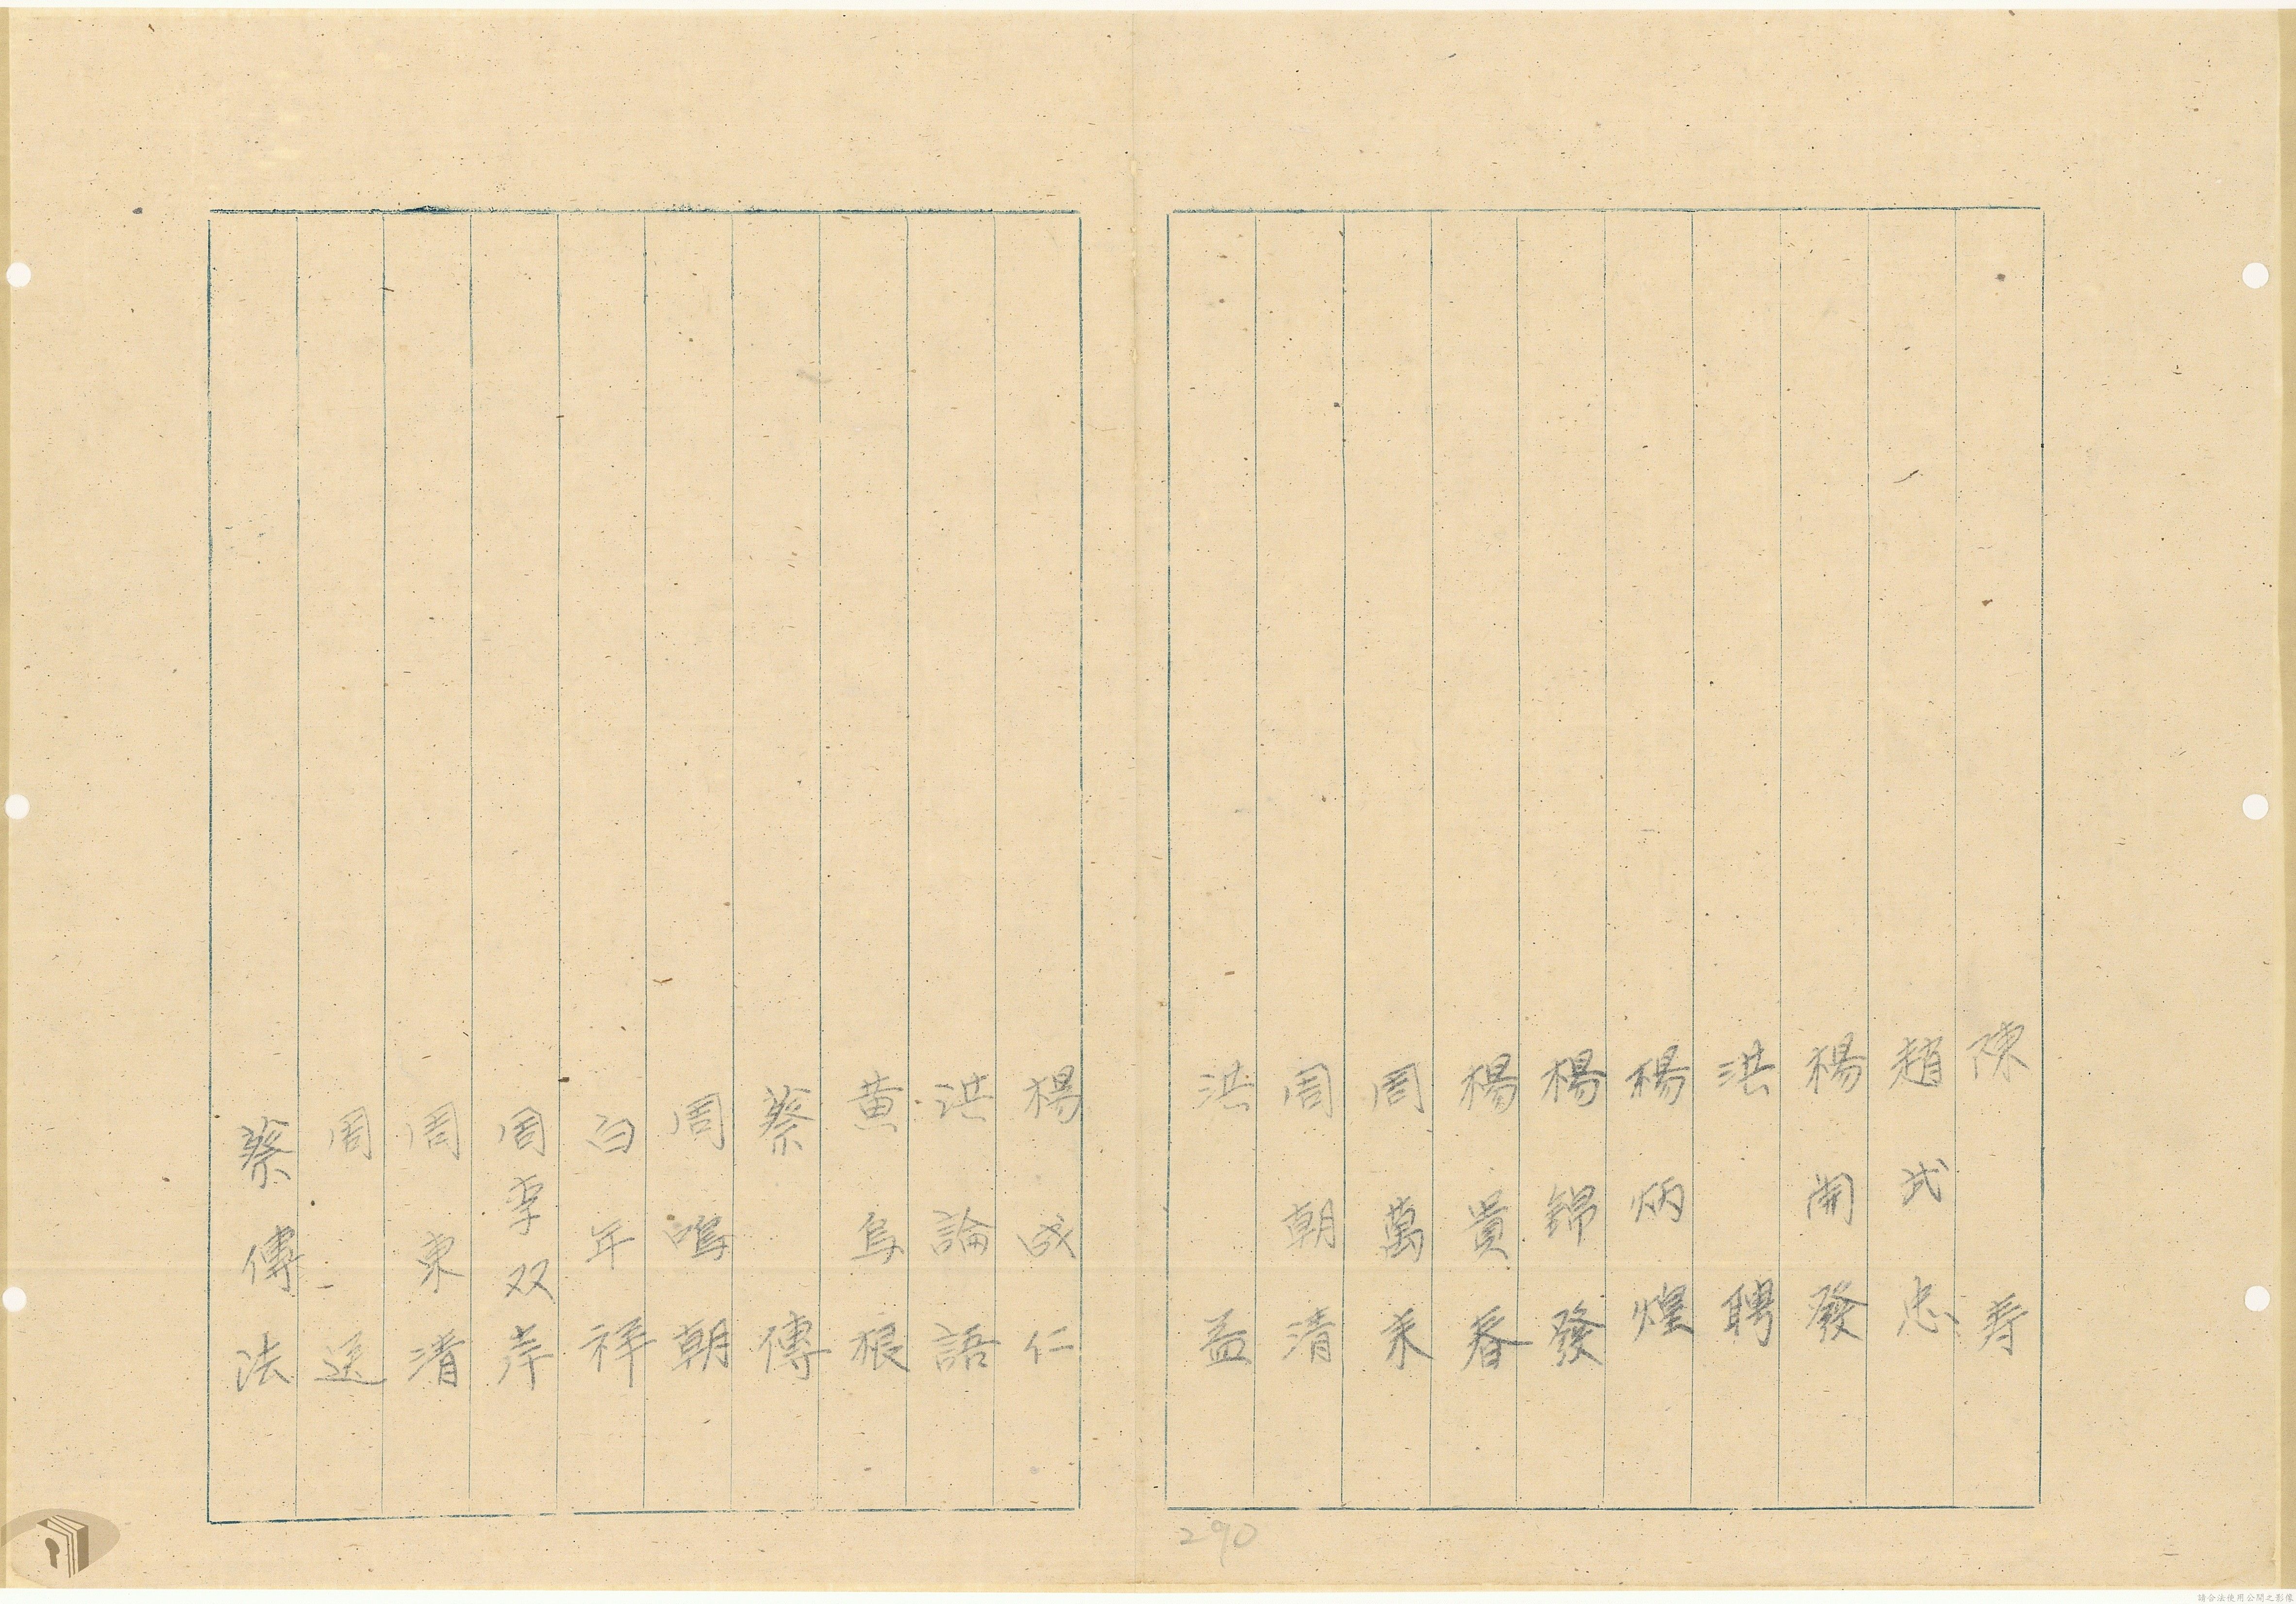 陳寿
趙武忠
楊開發
洪聘
楊炳煌
楊錦發
楊貴春
周萬来
周朝清
洪益
楊成仁
洪論語
黄烏根
蔡傳
周鳴朝
白年祥
周李双岸
周東清
周
蔡傳法
290
請合法使用公開之影像